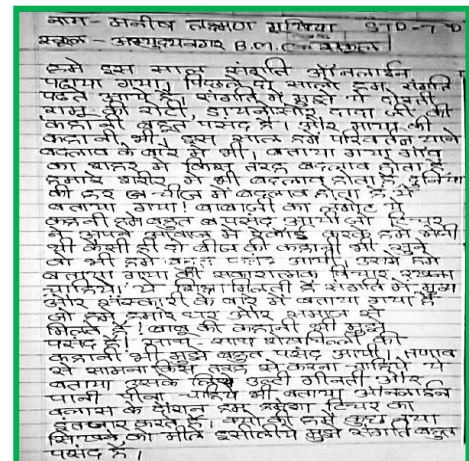 नाम - अनीष लक्ष्मण STD-7 D
स्कूल - अभ्युदयनगर B.M.C
हमे इस साल संगति ऑनलाईन
पढाया गया। पिछले दो सालो हम संगति
पढते आये है। संगति मे मुझे गे दोस्ती
रामु की रोटी, डायनासोर, दादा जी की
कहानी बहुत पसंद है। और माया की
कहानी भी। इस साल हम परिवर्तन याने
बदलाव के बारे मे भी। बताया गया गाँव
का शहर मे किस तरह बदलाव होता है
हमारे शरीर मे भी बदलाव होता है
की हर चीज मे बदलाव होता है ये
बताया गया। बाबाजी का लंगोट ये
कहानी हमे बहुत पसंद आयी जो टिचर
ने अपने आवाज मे रेकॉर्ड करके हमे भेजी
थी वैसी ही दो बीज की कहानी भी सुने
वो भी हमे बहुत पसंद आयी। उसमे हमे
बताया गया की सकारात्मक विचार रखना
चाहिये। ये शिक्षा मिलती है संगति मे मुल्य
और संस्कारो के बारे मे बताया गया है
जो हमे हमारे घर और समाज से
मिलते है। बाबु की कहानी भी मुझे
पसंद है। साथ-साथ शेखचिल्ली की
कहानी भी मुझे बहुत पसंद आयी। तणाव
से सामना किस तरह से करना चाहिये ये
बताया उसके लिए उल्टी गीनती और
पानी पीना चाहिये भी बताया ऑनलाईन
क्लास के दौरान हम हमेशा टिचर का
इंतजार करते है। क्योंकी हमे कुछ नया
सिखने को मीले इसीलीये मुझे संगति बहुत
पसंद है।